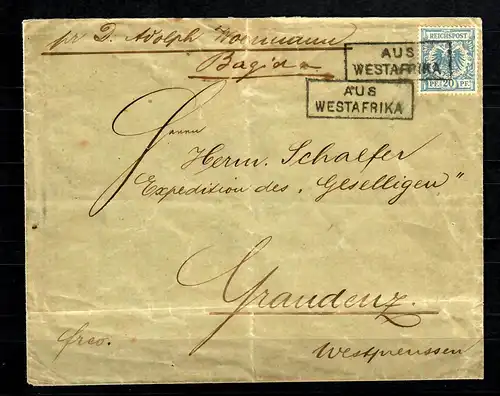 pr D. Adolph Woermann
Bagida
REICHSPOST
PF 20 PF
AUS
WESTAFRIKA
AUS
WESTAFRIKA
Herrn
Herm. Schaefer
Expedition des „Geselligen"
Graudenz.
Westpreussen
frco.